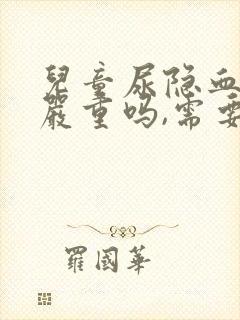 兒童尿隐血
嚴重吗,需要
羅國華